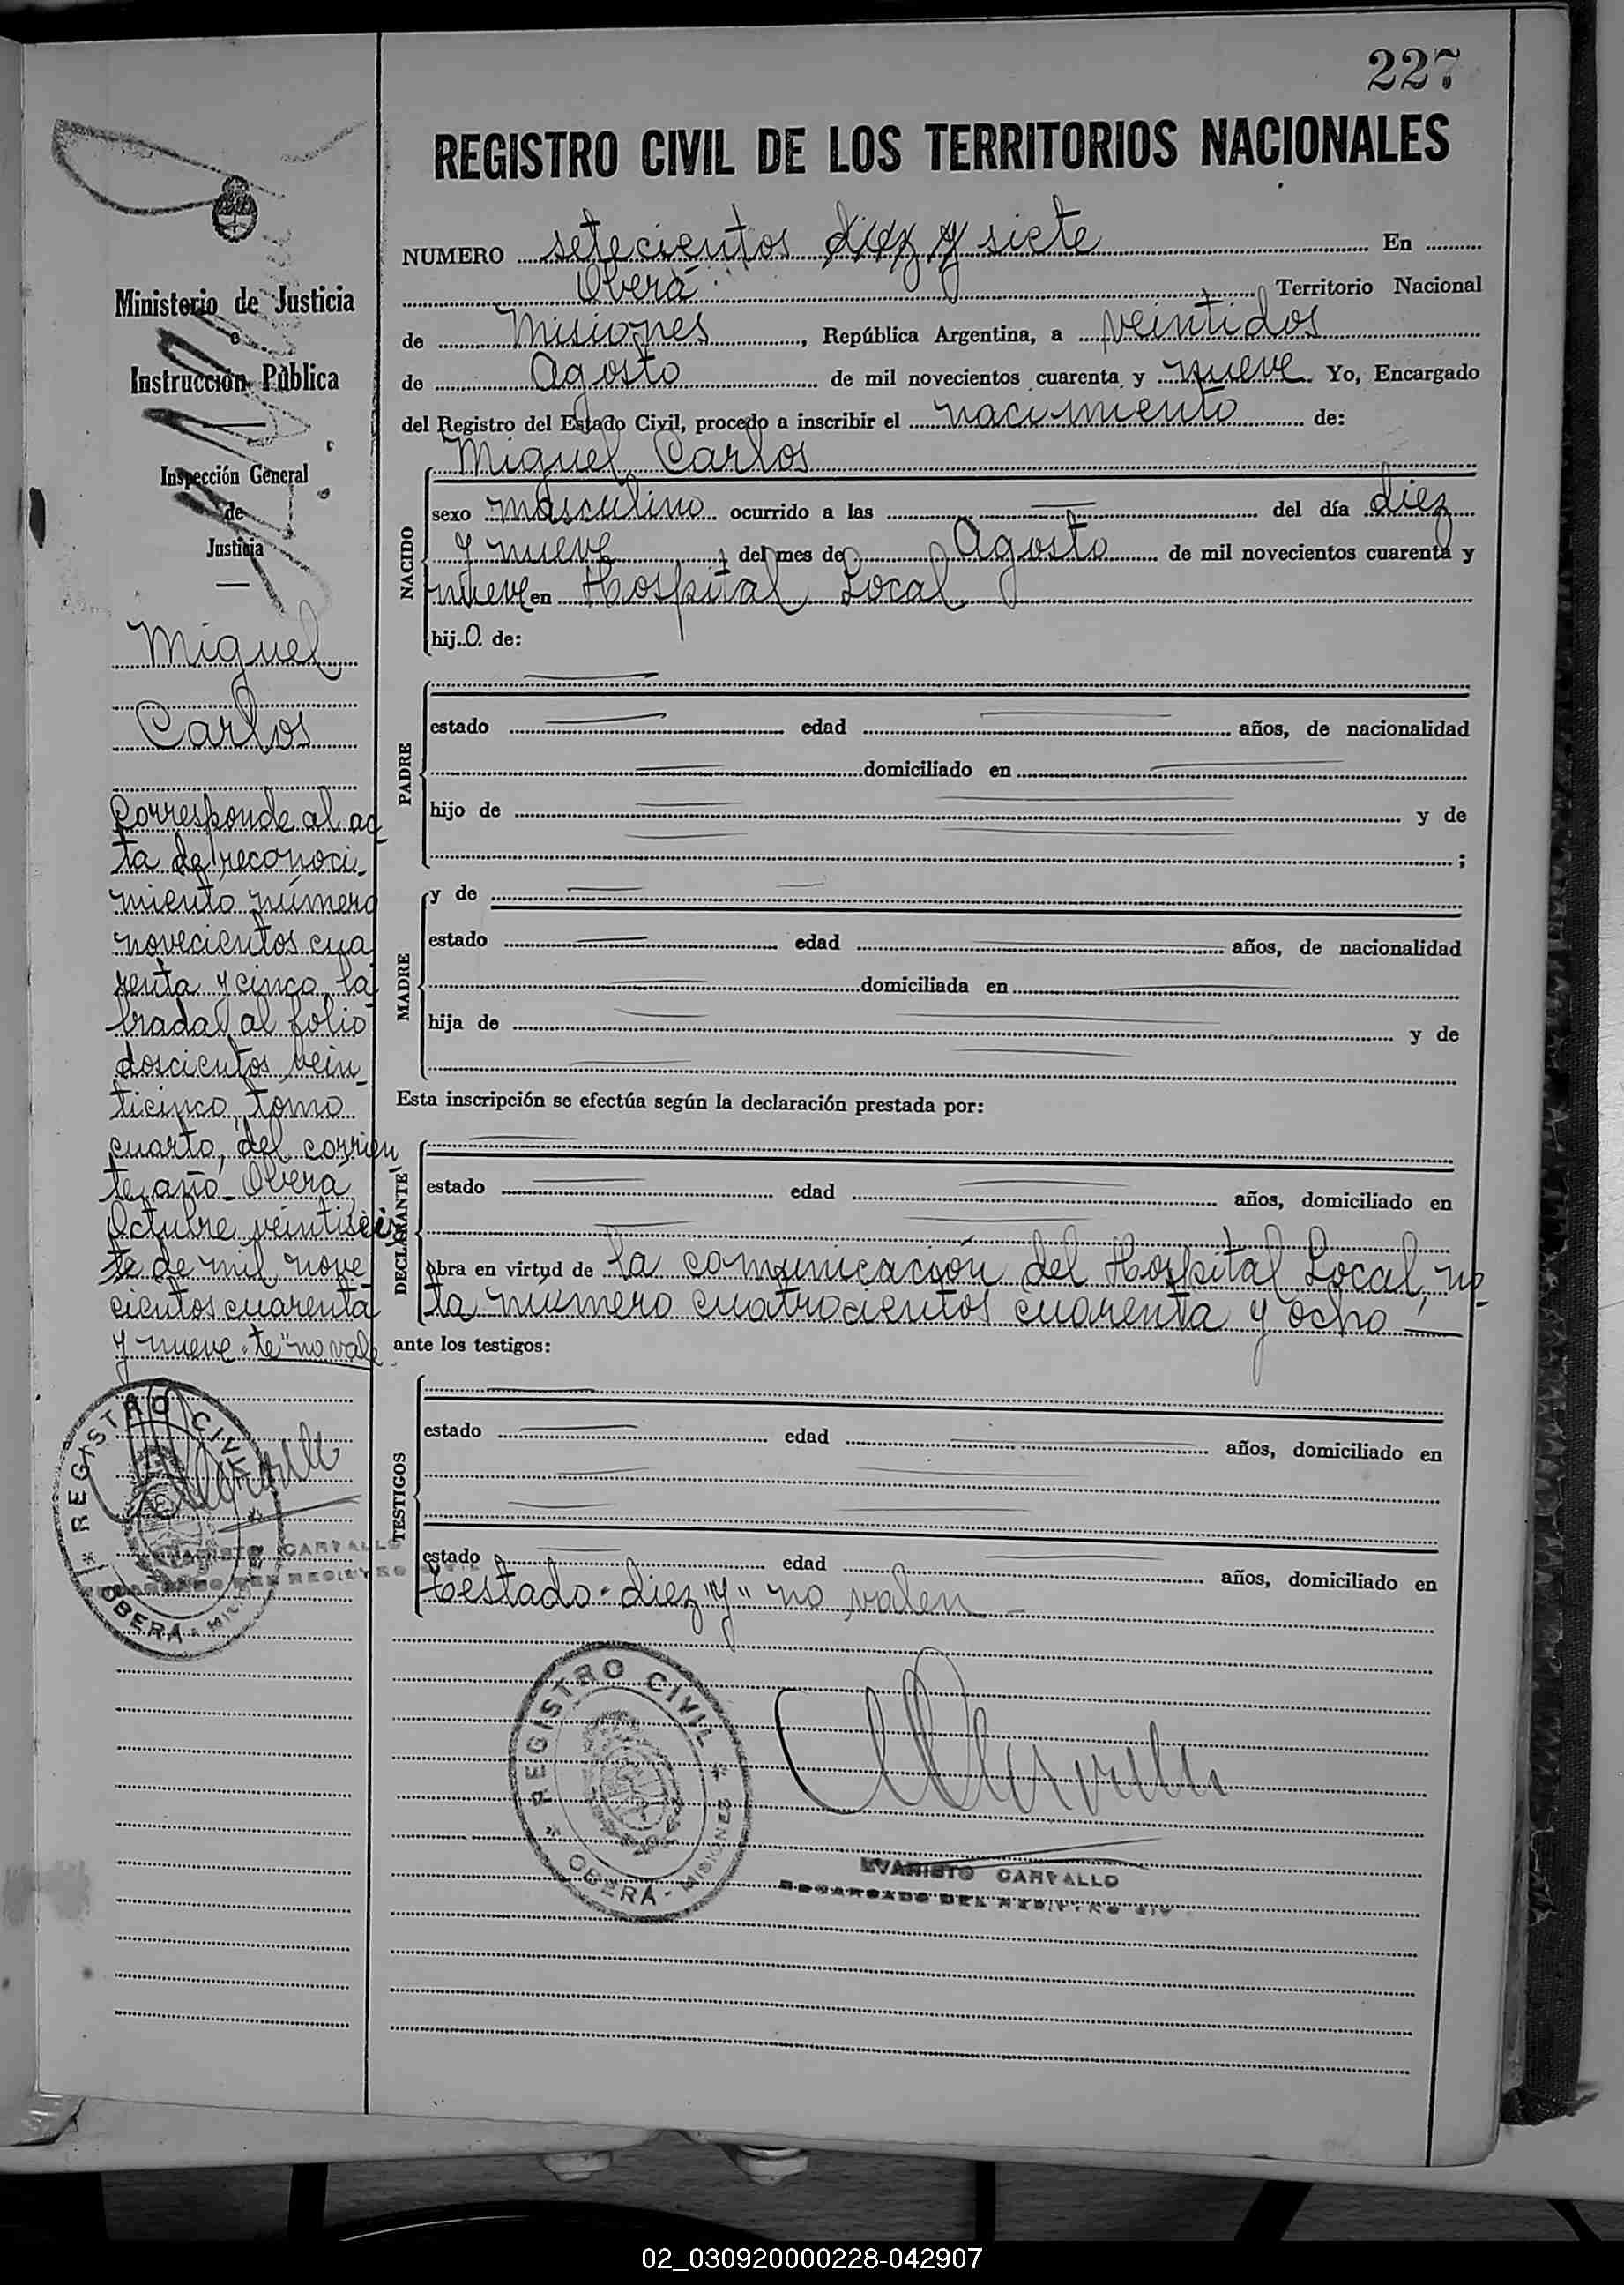 227
REGISTRO CIVIL DE LOS TERRITORIOS NACIONALES
NUMERO setecientos diez y siete En
Oberá Territorio Nacional
de Misiones, República Argentina, a veintidos
de Agosto de mil novecientos cuarenta y nueve. Yo, Encargado
del Registro del Estado Civil, procedo a inscribir el nacimiento de:
Miguel Carlos
NACIDO
sexo masculino ocurrido a las — del día diez
y nueve del mes de Agosto de mil novecientos cuarenta y
nueve en Hospital Local
hijo de:
PADRE
estado — edad — años, de nacionalidad
— domiciliado en —
hijo de — y de
— ;
MADRE
y de —
estado — edad — años, de nacionalidad
— domiciliada en —
hija de — y de
—
Esta inscripción se efectúa según la declaración prestada por:
DECLARANTE
—
estado — edad — años, domiciliado en
—
obra en virtud de la comunicación del Hospital Local, no-
ta numero cuatrocientos cuarenta y ocho —
ante los testigos:
TESTIGOS
—
estado — edad — años, domiciliado en
—
—
estado — edad — años, domiciliado en
Testado "diez" "y" no valen —
REGISTRO CIVIL
OBERÁ - MISIONES
EVARISTO CARVALLO
ENCARGADO DEL REGISTRO CIV
Ministerio de Justicia
e
Instrucción Pública
—
Inspección General
de
Justicia
—
Miguel
Carlos
Corresponde al ac-
ta de reconoci-
miento número
novecientos cua
renta y cinco, la
brada al folio
doscientos vein-
ticinco, tomo
cuarto, del corrien
te año - Oberá,
Octubre veintiseis
te de mil nove
cientos cuarenta
y nueve - "te" no vale
REGISTRO CIVIL
OBERÁ - MISIONES
EVARISTO CARVALLO
ENCARGADO DEL REGISTRO CIVIL
02_030920000228-042907